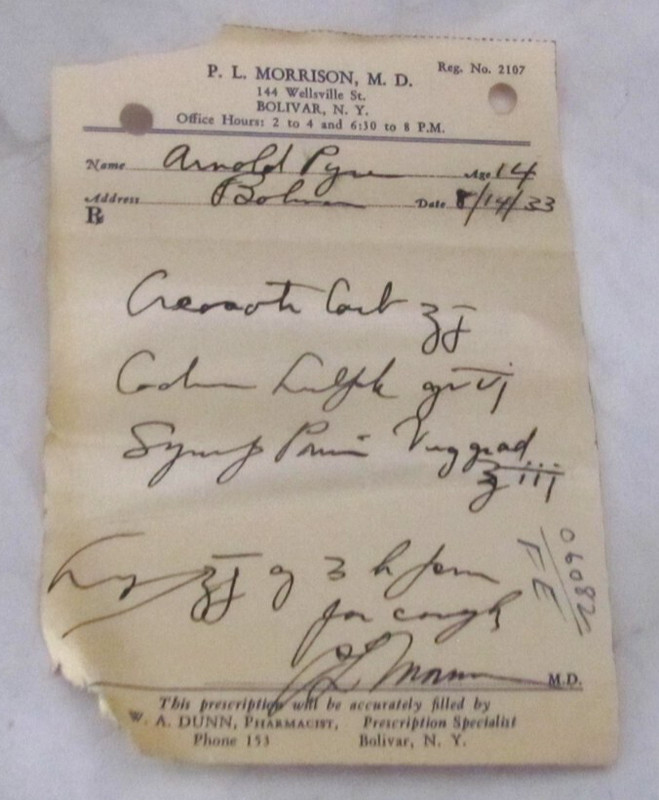 P. L. MORRISON, M. D.
Reg. No. 2107
144 Wellsville St.
BOLIVAR, N. Y.
Office Hours: 2 to 4 and 6:30 to 8 P.M.
Name Arnold Age 14
Address Date 8/14/33
℞
Creosote Carb ʒ
Codein Sulph gr vi
Syrup Pruni Virg qad
ʒ iii
ʒ q 3 h
for cough
P L Morrison M.D.
This prescription will be accurately filled by
W. A. DUNN, PHARMACIST, Prescription Specialist
Phone 153 Bolivar, N. Y.
06082
FE